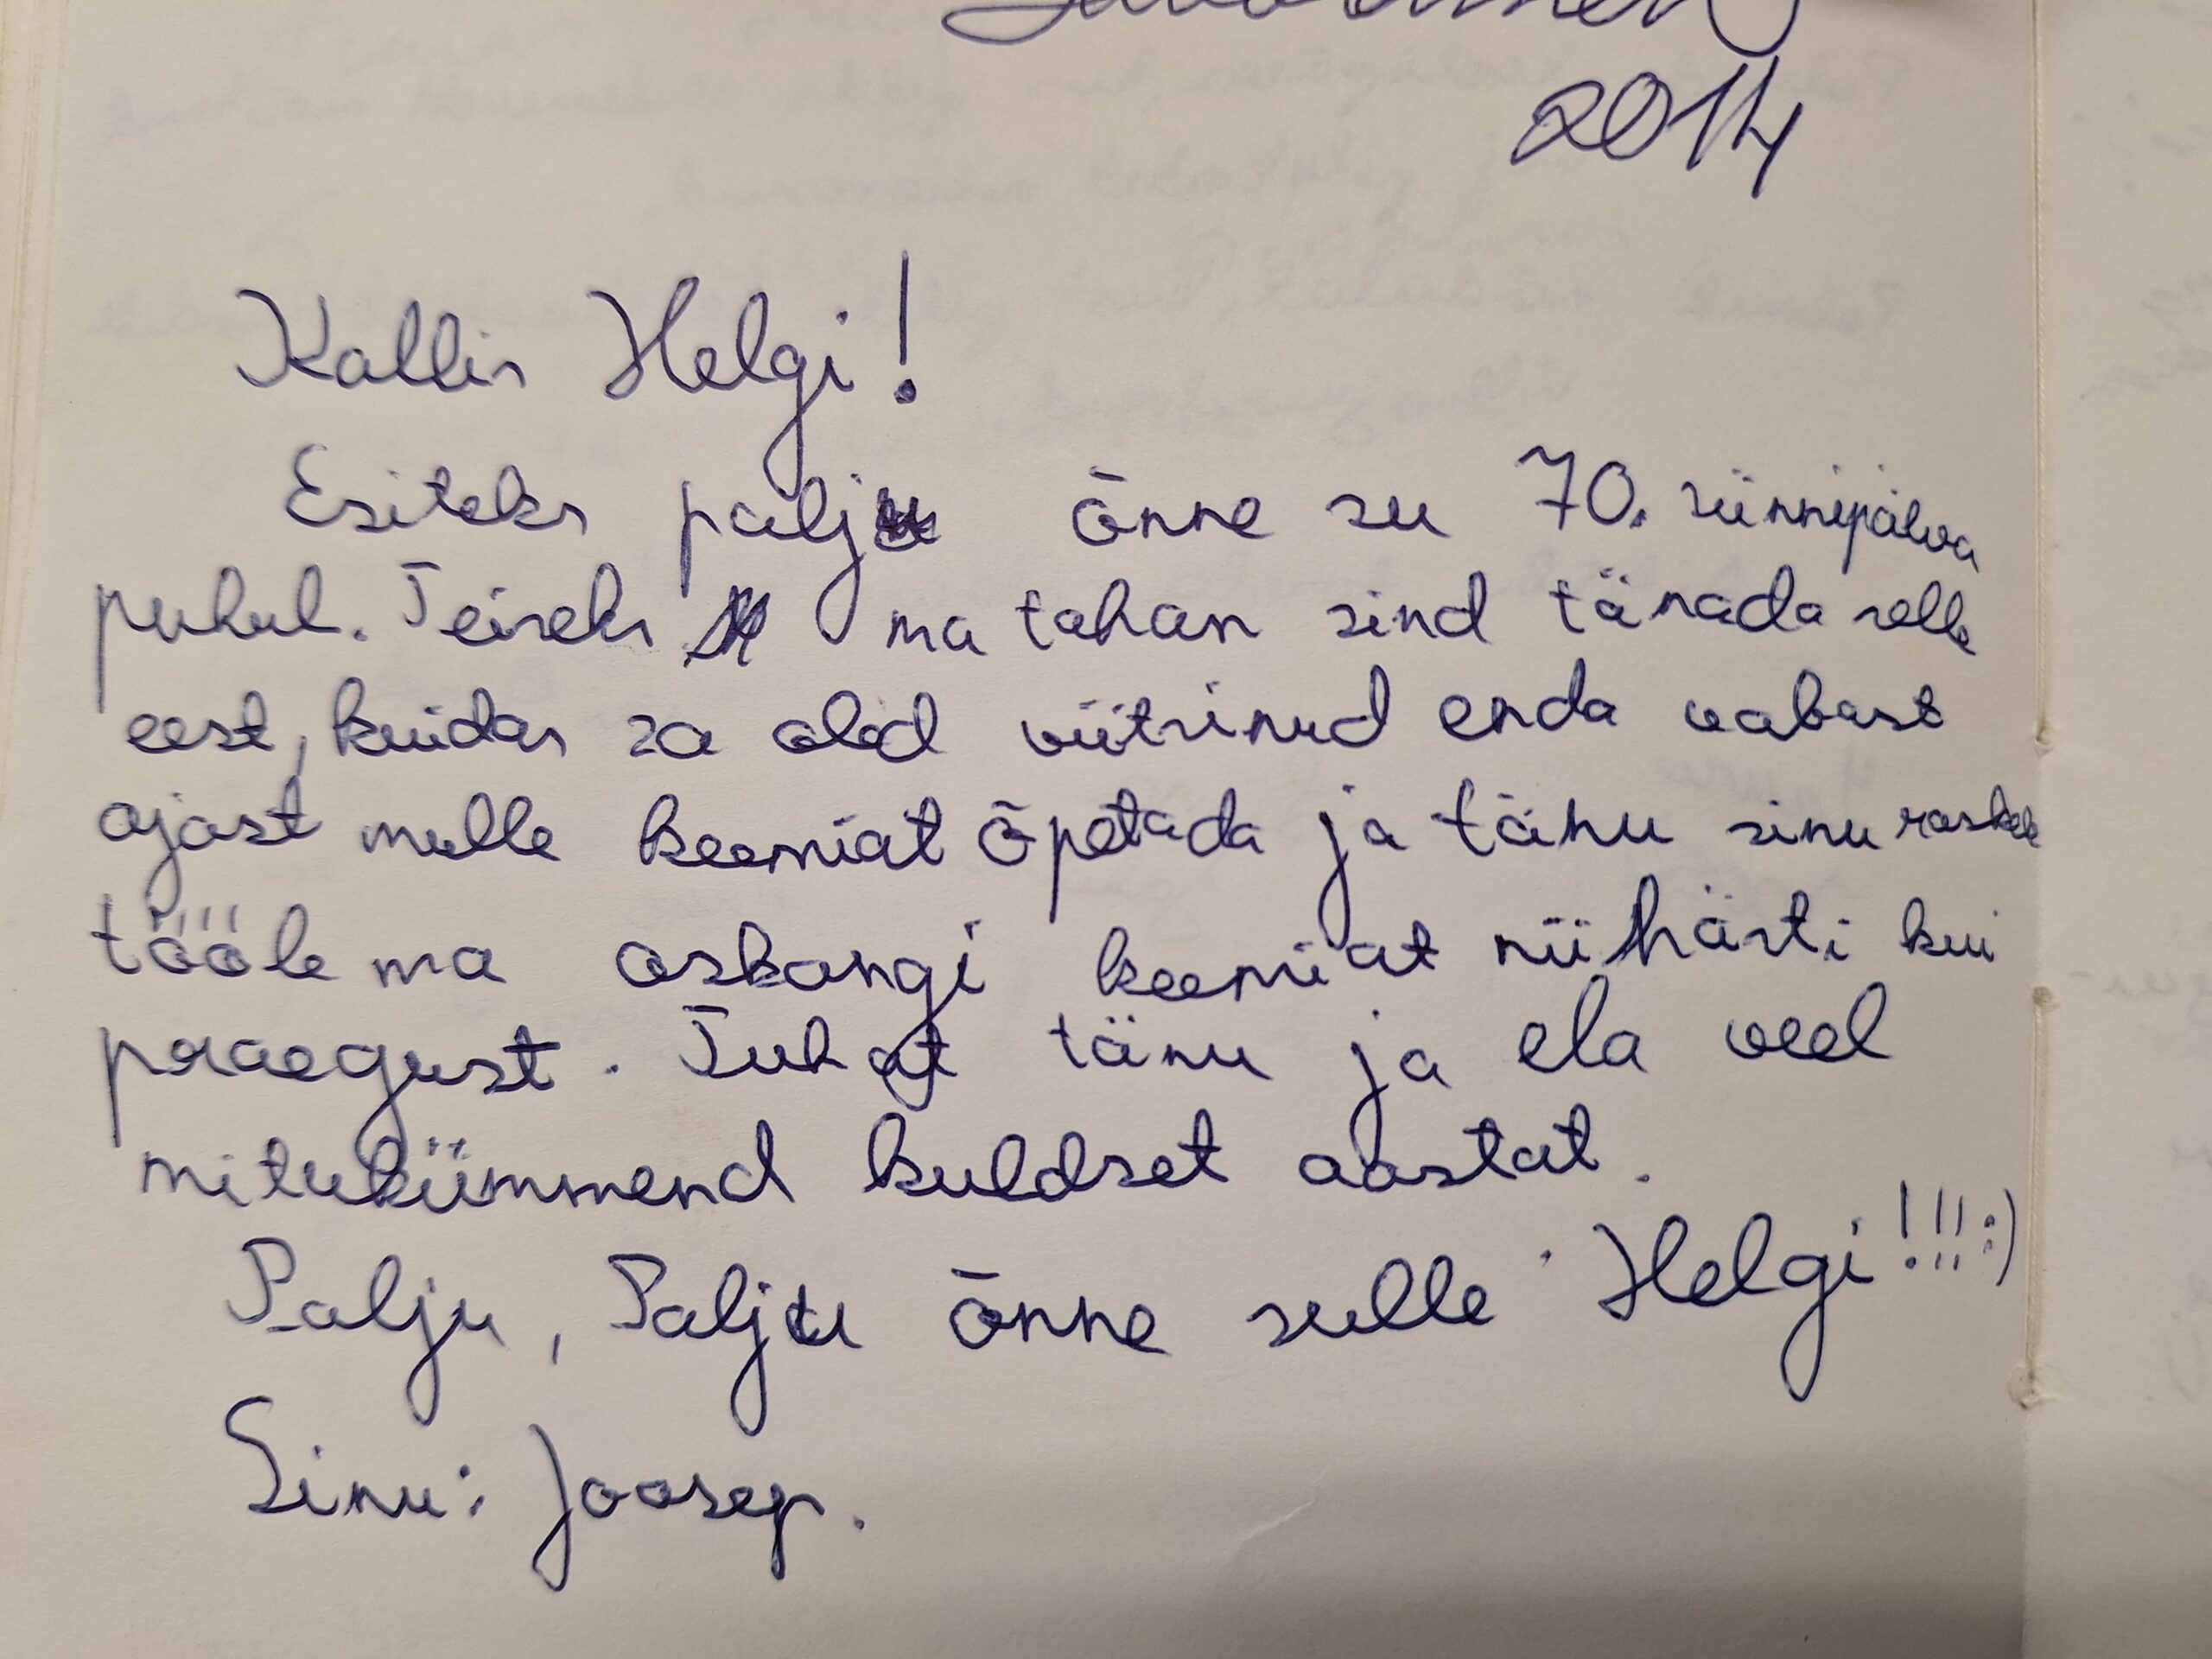 2014
Kallis Helgi!
Esiteks palju õnne su 70. sünnipäeva
puhul. Teiseks ma tahan sind tänada selle
eest, kuidas sa olid viitsinud enda vabast
ajast mulle keemiat õpetada ja tänu sinu raskele
tööle ma oskangi keemiat nii hästi kui
praegust. Tuhat tänu ja ela veel
mitukümmend kuldset aastat.
Palju, Palju õnne sulle Helgi!!!:)
Sinu: Joosep.